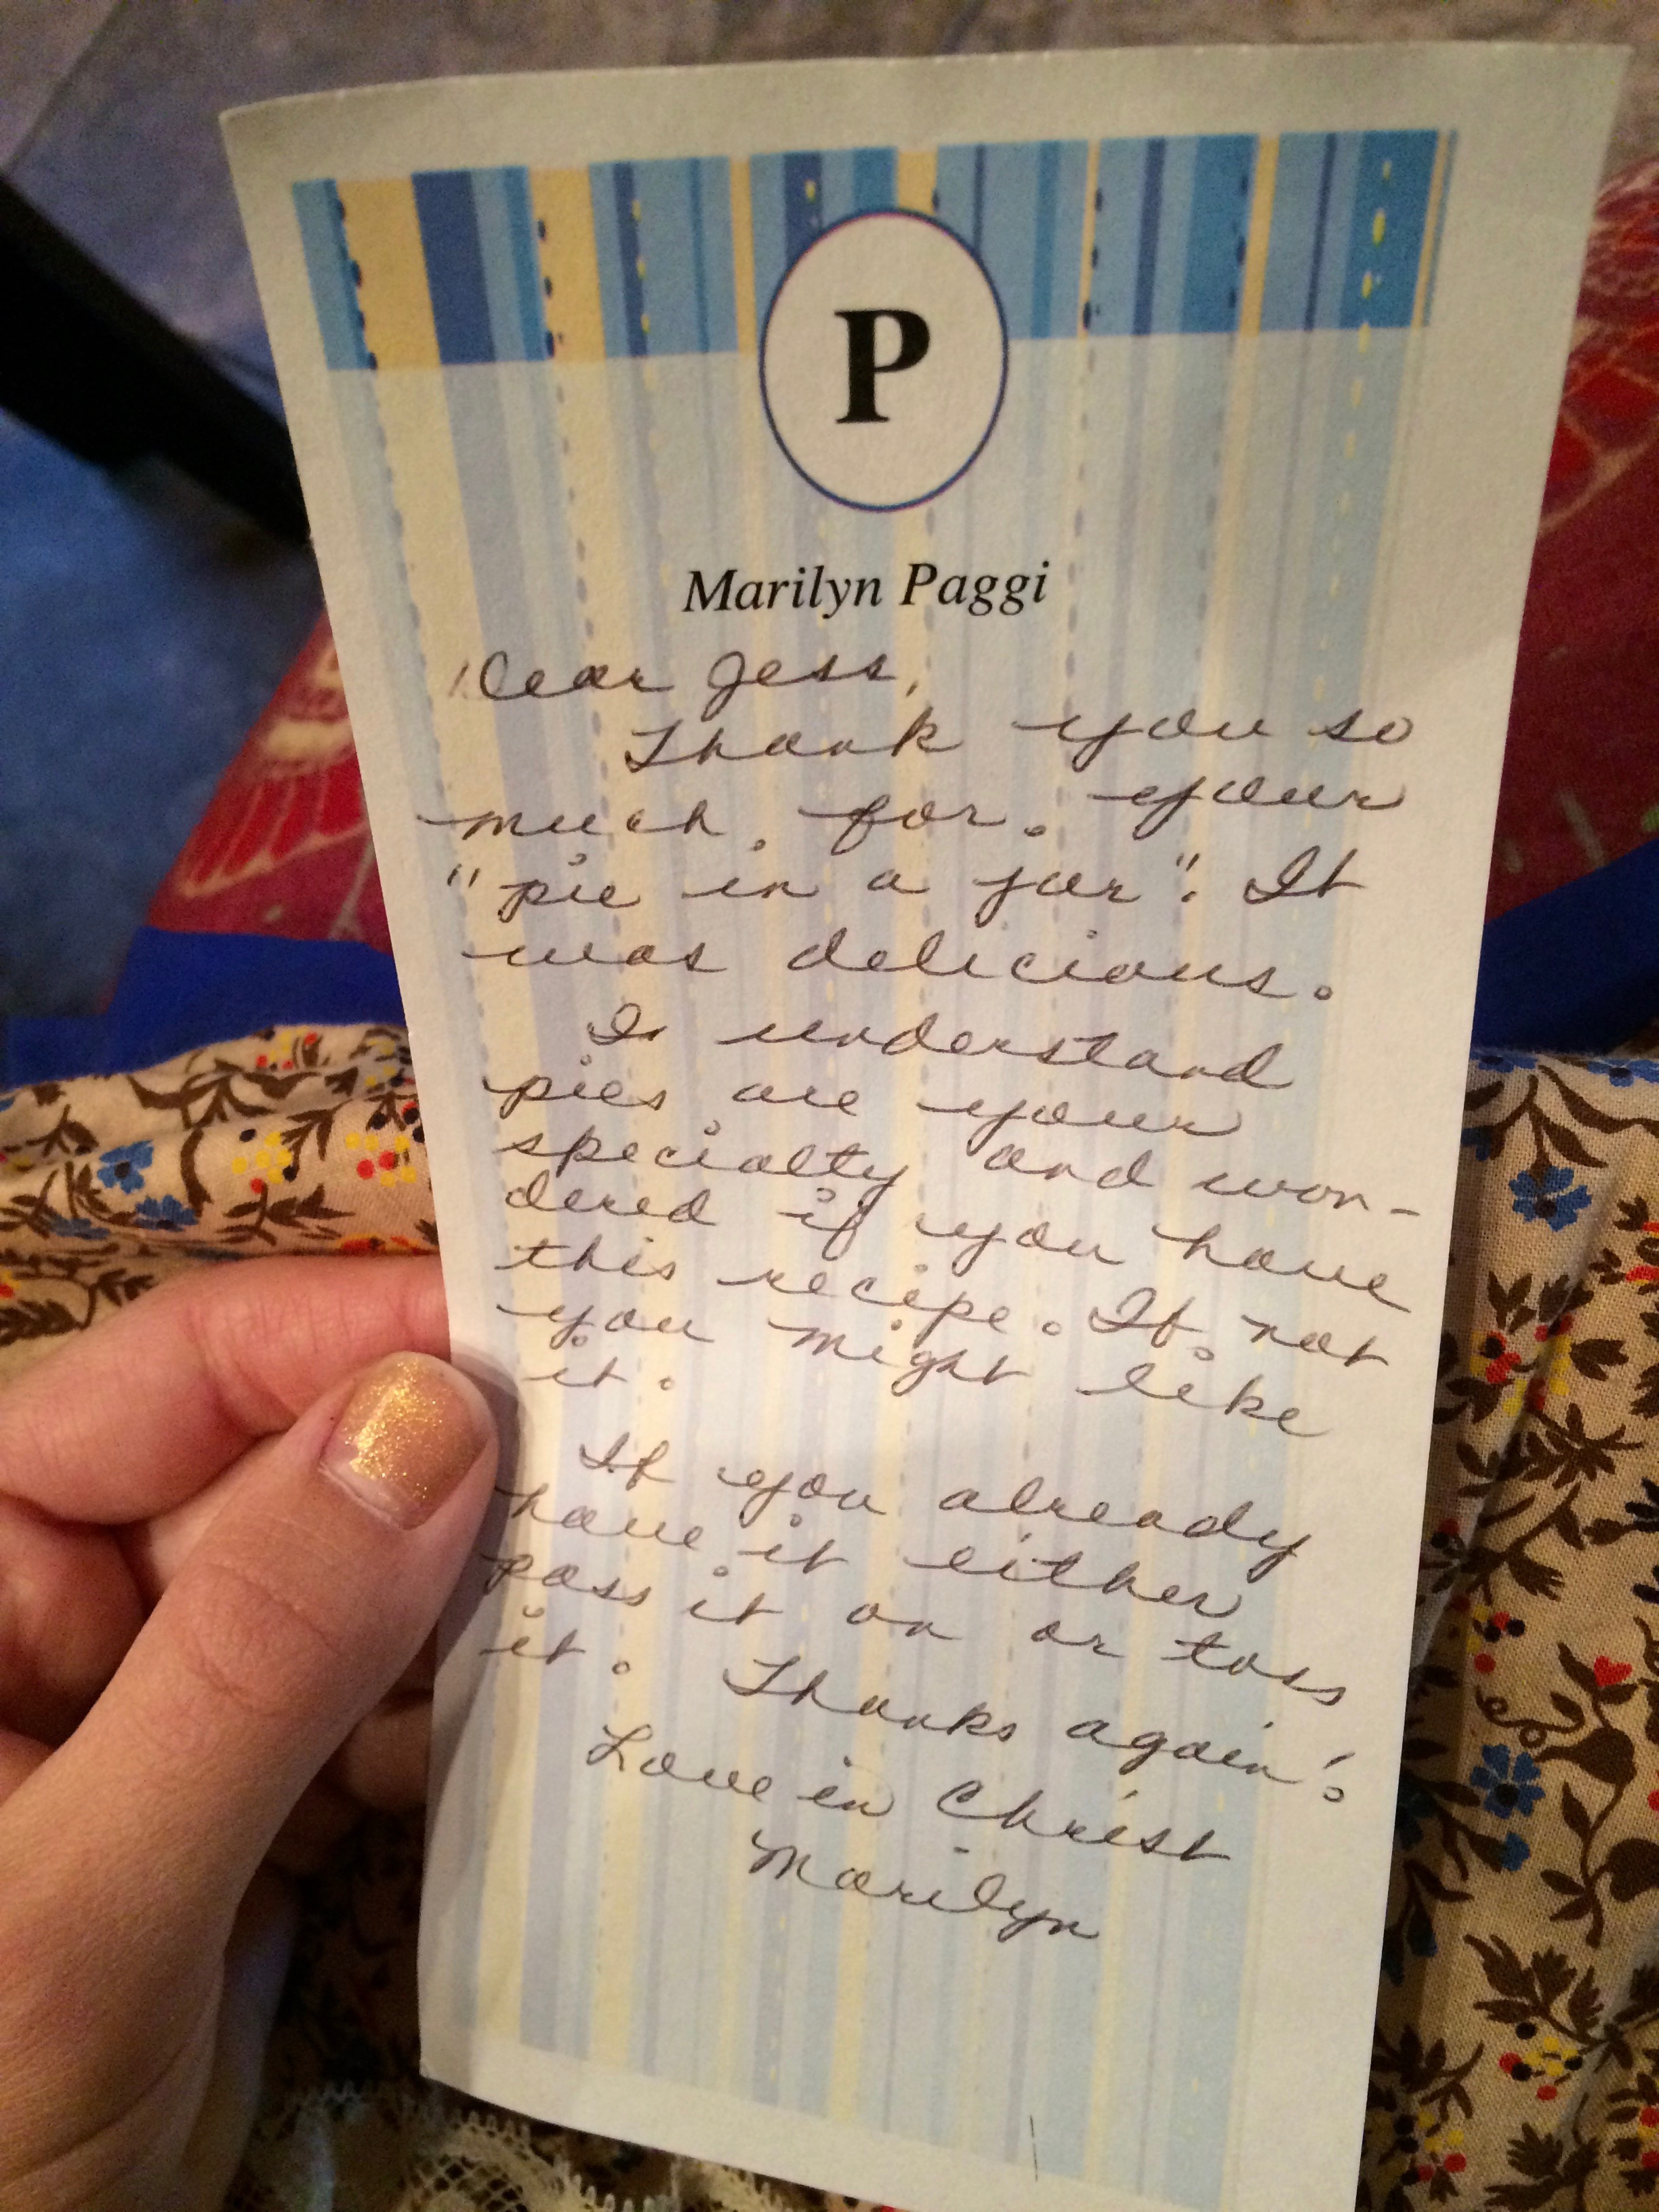 P
Marilyn Paggi
Dear Jess,
Thank you so
much for your
"pie in a jar". It
was delicious.
I understand
pies are your
specialty and won-
dered if you have
this recipe. If not
you might like
it.
If you already
have it either
pass it on or toss
it. Thanks again!
Love in Christ
Marilyn